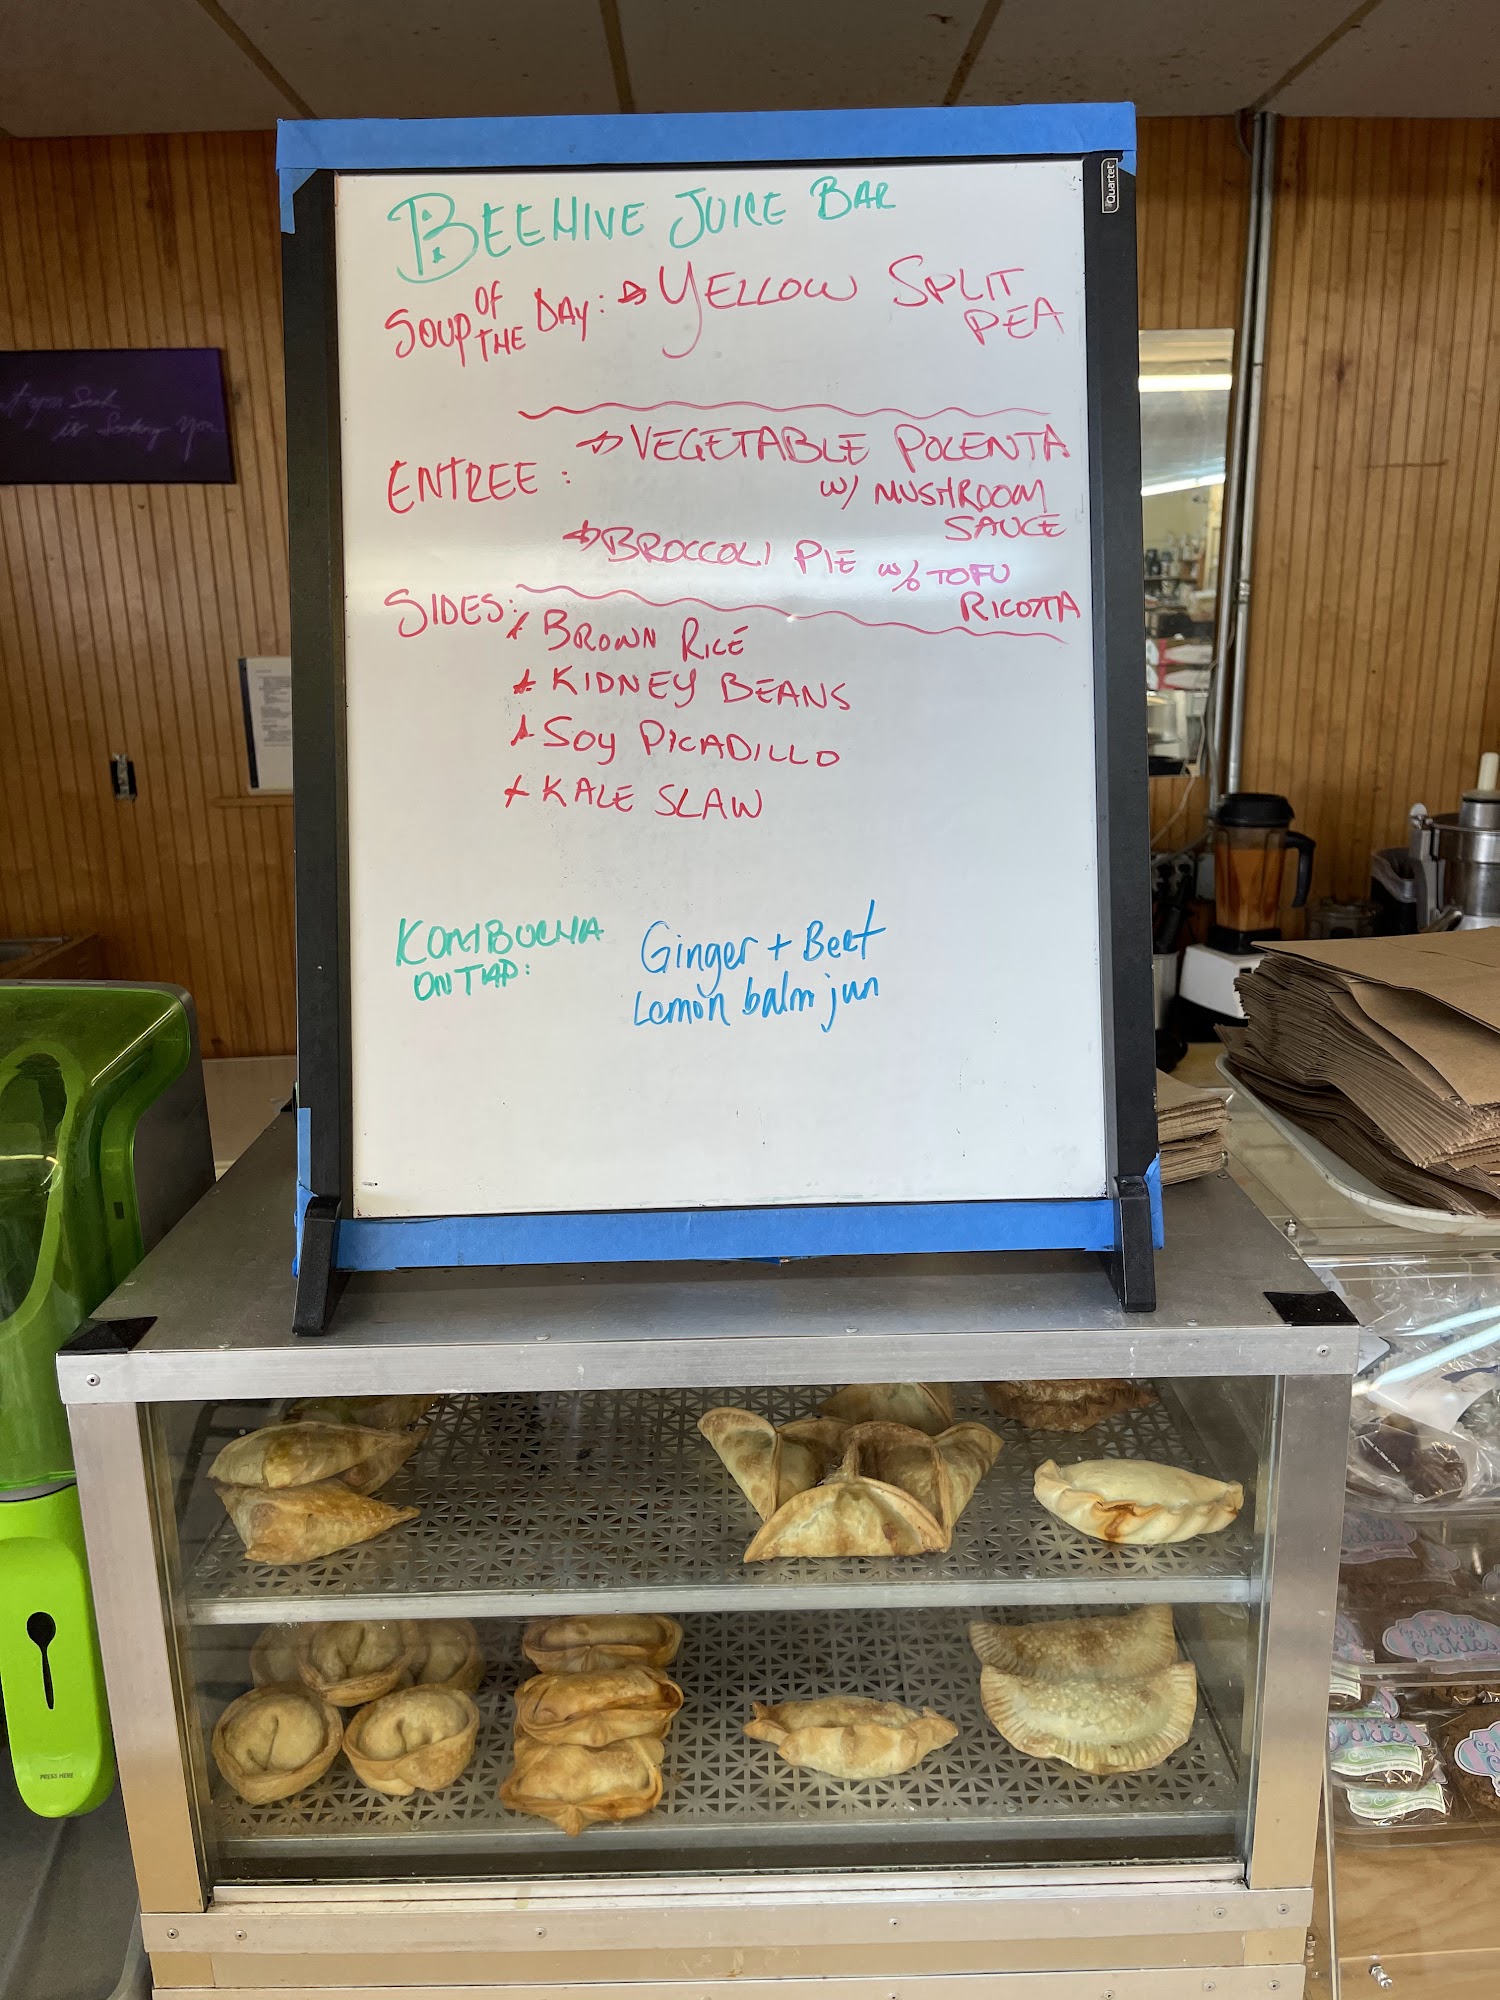 Quartet
BEEHIVE JUICE BAR
SOUP OF THE DAY: YELLOW SPLIT
PEA
ENTREE: VEGETABLE POLENTA
W/ MUSHROOM
SAUCE
BROCCOLI PIE W/ TOFU
RICOTTA
SIDES:
BROWN RICE
KIDNEY BEANS
SOY PICADILLO
KALE SLAW
KOMBUCHA
ON TAP:
Ginger + Beet
Lemon balm jun
is Seeking you
PRESS HERE
Cookies